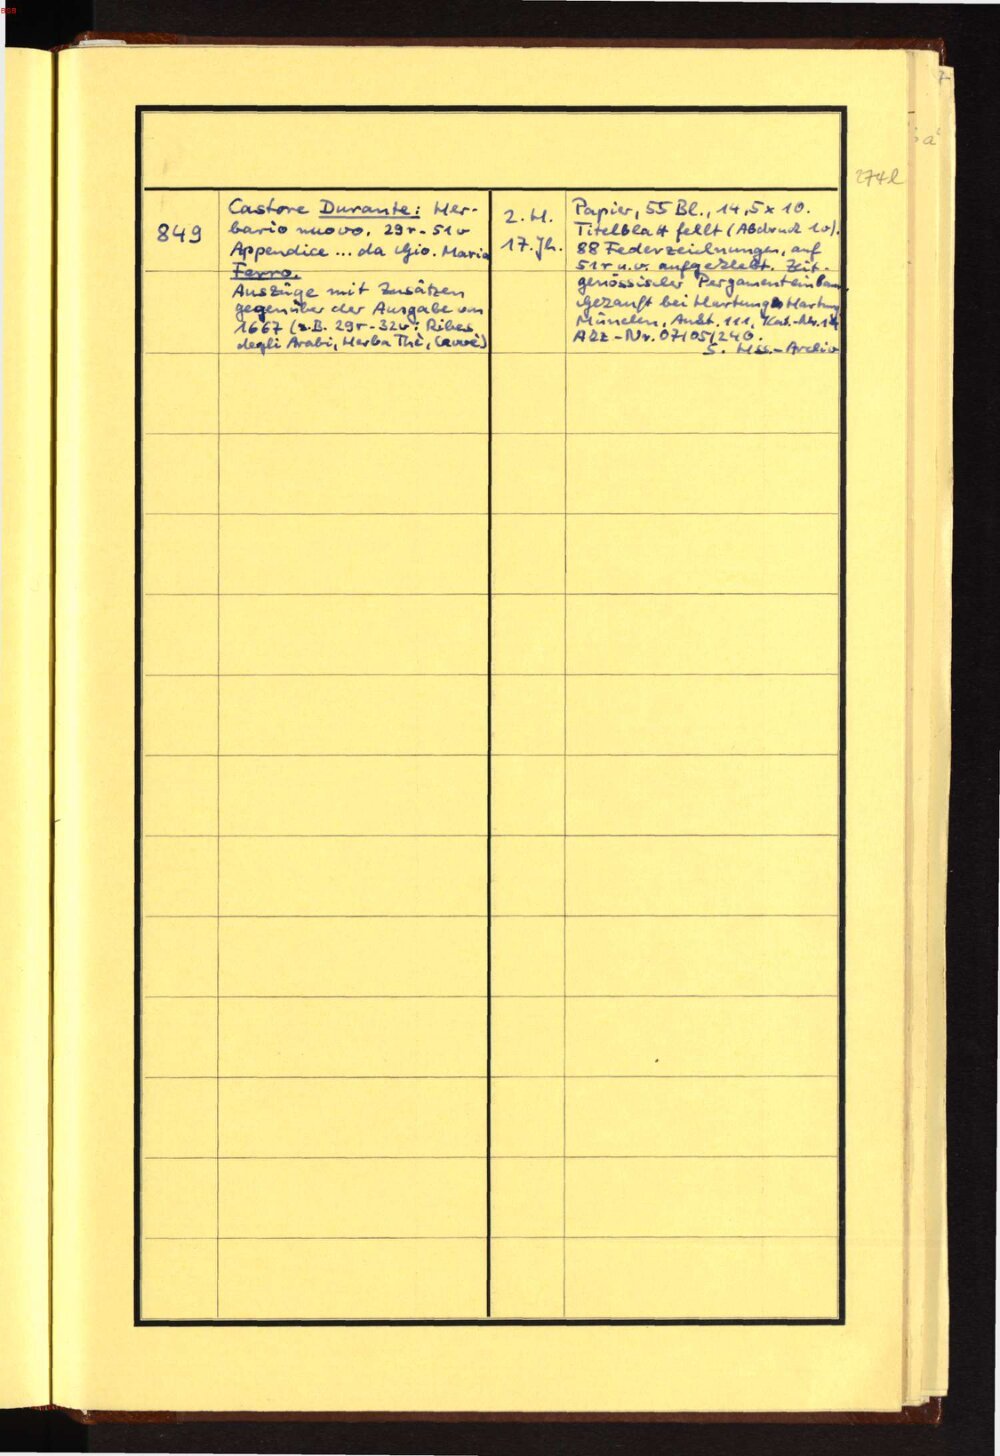 BSB
7
a
274l
849
Castore Durante: Her-
bario nuovo. 29r-51v
Appendice ... da Gio. Maria
Ferro.
Auszüge mit Zusätzen
gegenüber der Ausgabe von
1667 (z.B. 29r-32v: Ribes
degli Arabi, Herba Thè, Cauvè)
2. H.
17. Jh.
Papier, 55 Bl., 14,5 x 10.
Titelblatt fehlt (Abdruck 1v).
88 Federzeichnungen, auf
51r u.v. aufgeklebt. Zeit-
genössischer Pergamenteinban
Gekauft bei Hartung & Hartung
München, Aukt. 111, Kat.-Nr.
Akz-Nr. 07/05/240.
S. Hss.-Archiv